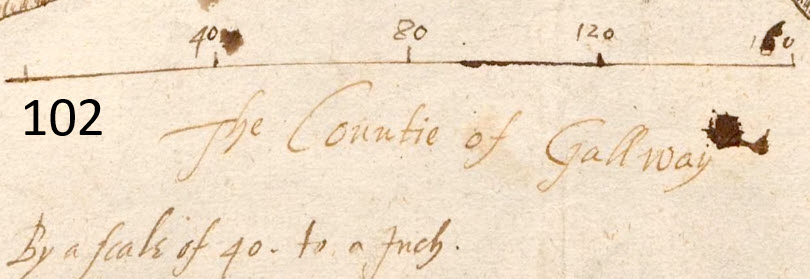 40 80 120 160
102
The Countie of Gallway
By a scale of 40. to a Inch.